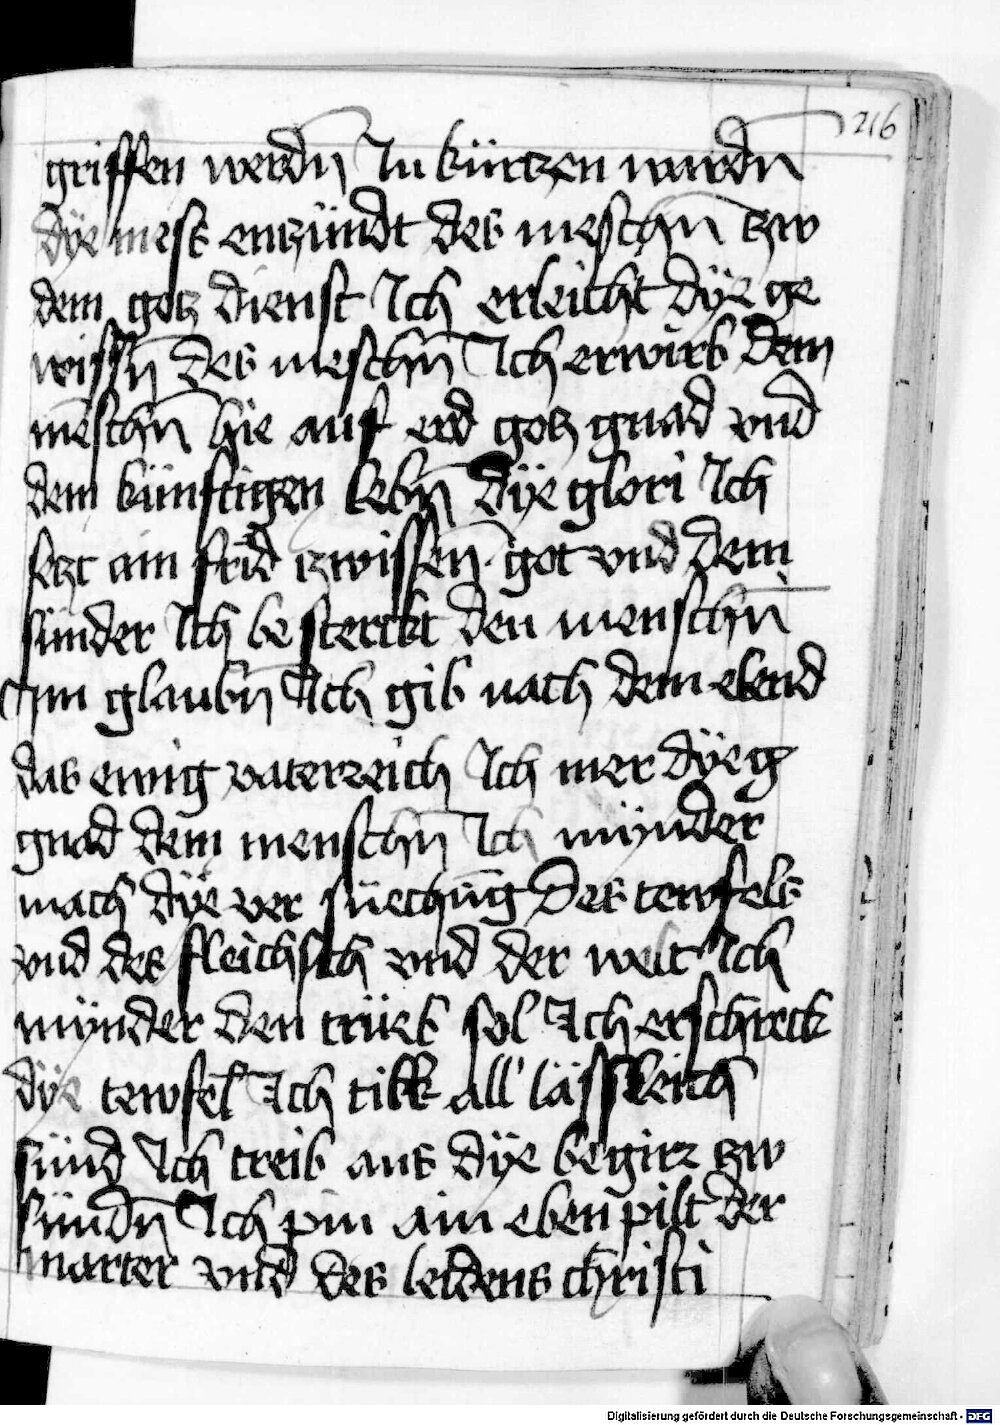 216
griffen werdn̄ In kürtzen wardn̄
dÿe mess enzündt des meschn̄ tzw
dem gotz dienst Ich erleicht dÿe ge
wissn̄ des meschn̄ Ich erwirb dem
mēschn̄ hie auf erd gotz gnad vnd
dem künftigen lebn̄ dÿe glori Ich
setzt ain frid tzwissen̄ got vnd dem
sünder Ich be sterckt den menschn̄
Im glaubn̄ Ich gib nach dem elend
das ewig vaterreich Ich mer dÿe g
gnad dem menschn̄ Ich mÿnder
mach dÿe ver süechūg des tewfels
vnd des fleichsch vnd der welt Ich
mÿnder den trüeb sol Ich erschreck
dÿe tewfel Ich tilk all lässleich
sünd Ich treib aus dÿe begirz tzw
sündn̄ Ich pin ain eben pilt der
marter vnd des leidens christi
Digitalisierung gefördert durch die Deutsche Forschungsgemeinschaft - DFG